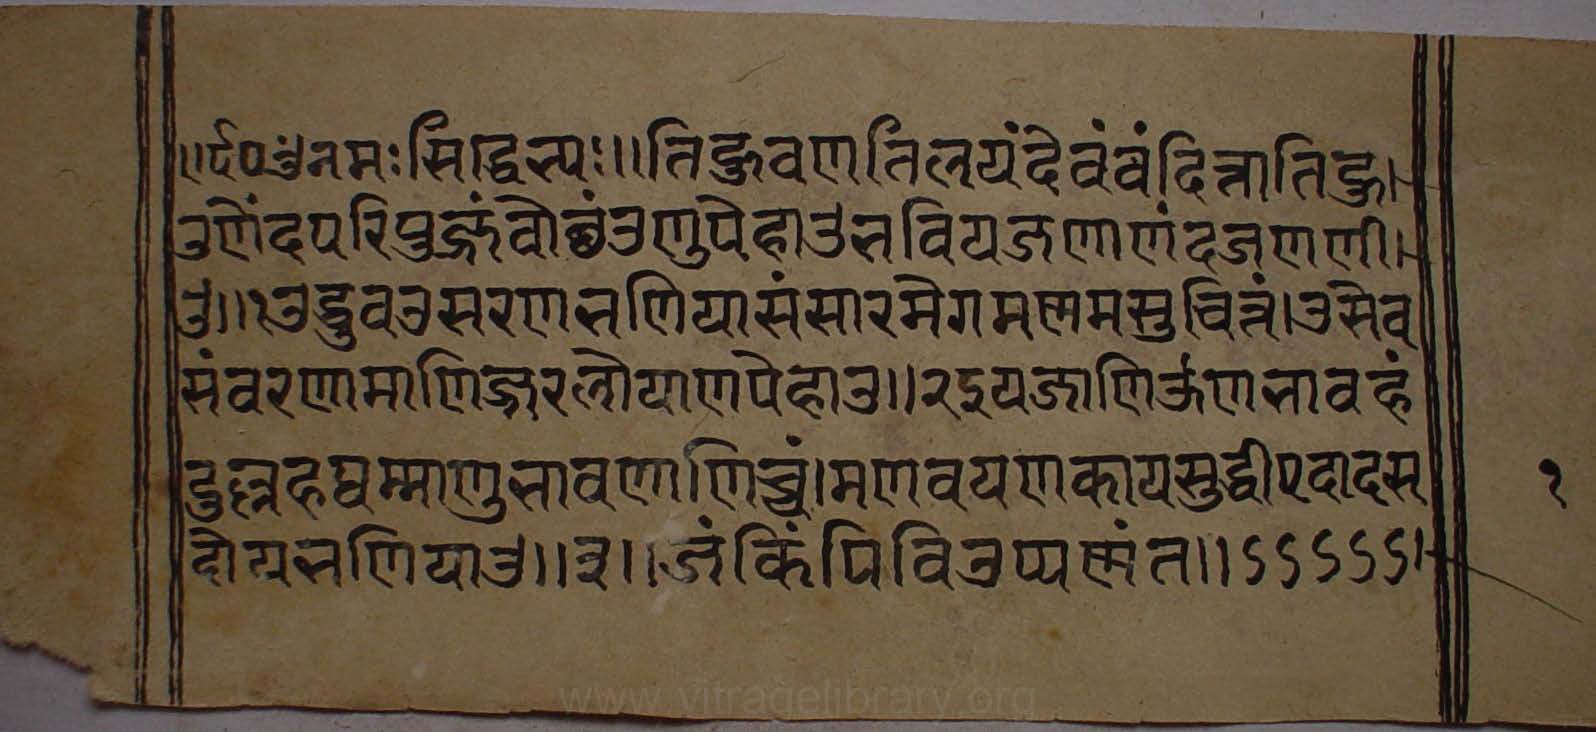 ॥र्द०॥ उँ नमः सिद्धेभ्यः॥ तिहुवणतिलयं देवं वंदित्ता तिहु।
उणेंदपरिपुज्जं वोछं उणुपेहाउ भवियजणाणंदजणणी।
उ॥१ अद्धुव असरण भणिया संसारमेगमण्णमसुचित्तं। असव
संवरणामा णिज्जरलोयाणपेहाउ॥२ इय जाणिऊण भावह
दुल्लह धम्माणुभावणा णिच्चं। मणवयणकायसुद्धी एदा दस
दोय भणियाउ॥३॥ जं किंपि वि उप्पण्णं त॥ऽऽऽऽऽऽ।
१
www.vitragelibrary.org